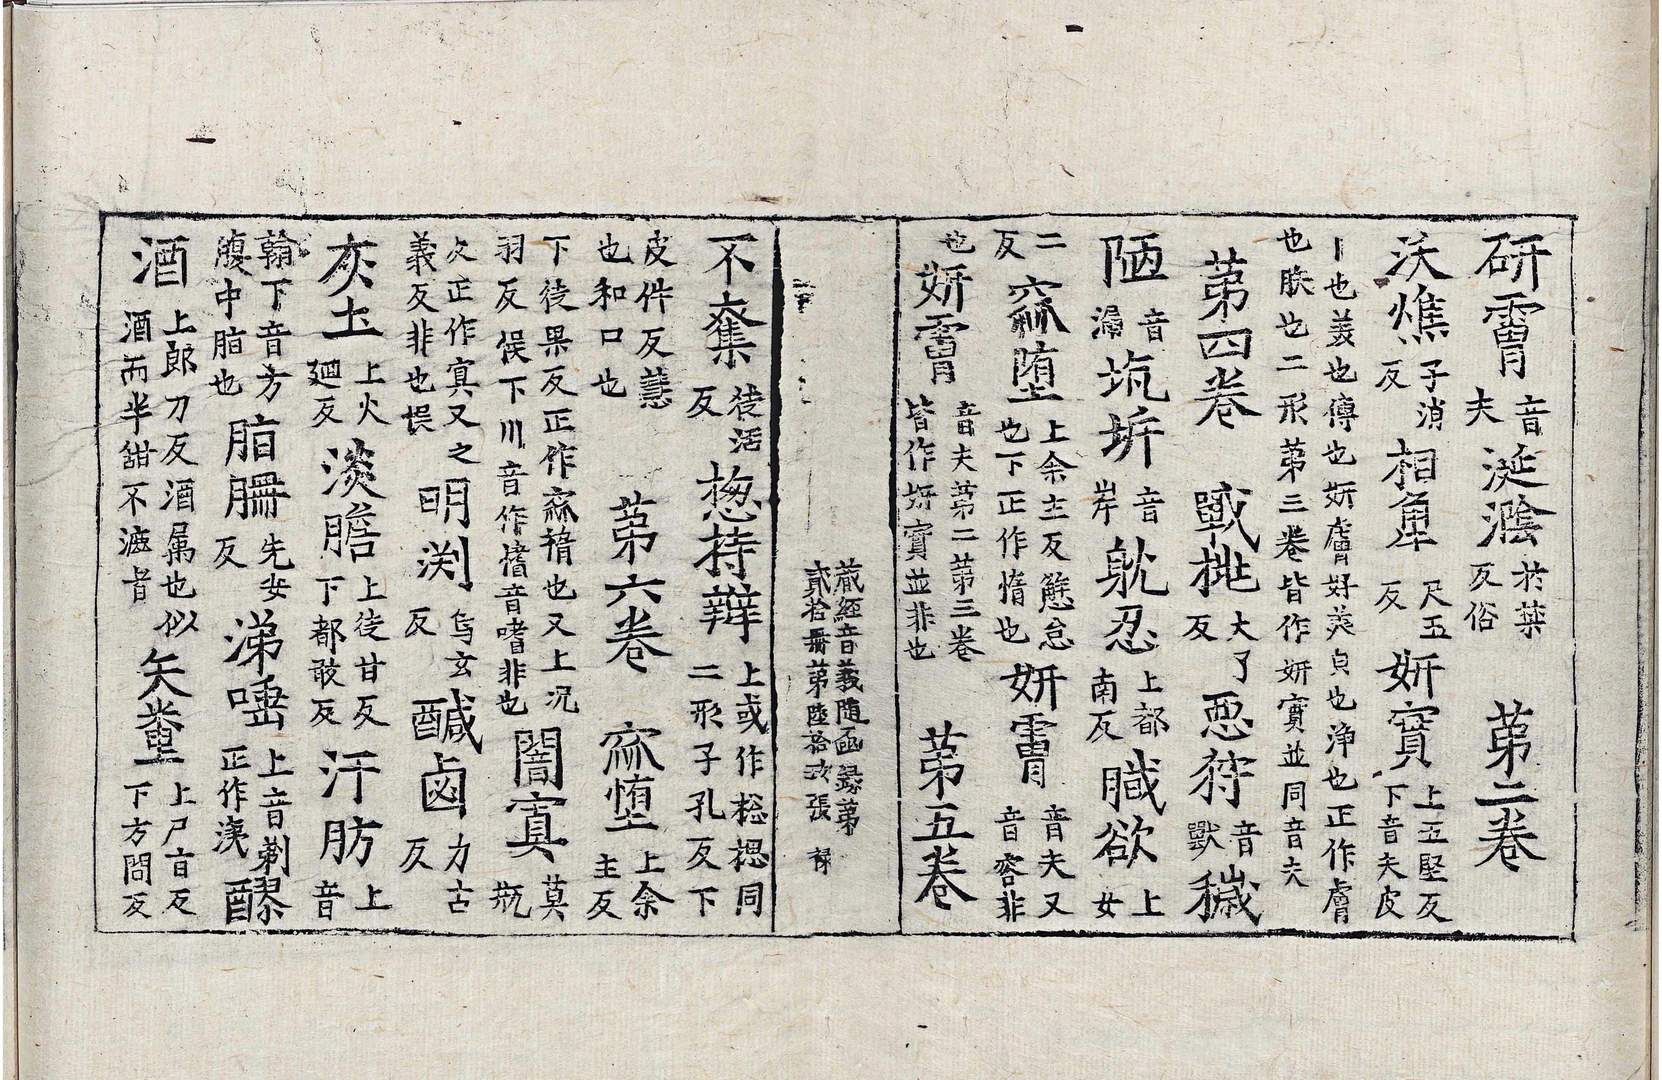 研霄音夫涎漝於禁反俗第二卷
沃燋子消反相㡿尺五反妍寳上五堅反下音夫皮
丨也美也傅也妍膚好美皃也浄也正作膚也肤也二形第三卷皆作妍寳並同音夫
第四卷戰桃大了反惡狩音獸穢
陋音漏坑坼音岸躭忍上都南反膱欲上女
二反窳堕上余主反懈怠也下正作惰也妍霄音夫又音宵非
也妍霄音夫第二第三卷皆作妍寳並非也第五卷
藏經音義随函録第
貳拾冊第陸拾玖張禄
不奪徒活反揔持辯上或作捴揌同二形子孔反下
皮件反慧也和口也第六卷窳堕上余主反
下徒果反正作窳惰也又上况羽反悮下川音作㥩音嗜非也闇寘莫瓶
反正作冥又之義反非也悮明渕烏玄反醎鹵力古反
灰土上火廻反淡膽上徒甘反下都敢反汗肪上音
翰下音方腹中脂也脂𦙱先安反涕唾上音剃正作洟醪
酒上郎刀反酒属也似酒而半甜不漉者矢𡊄上尸旨反下方問反